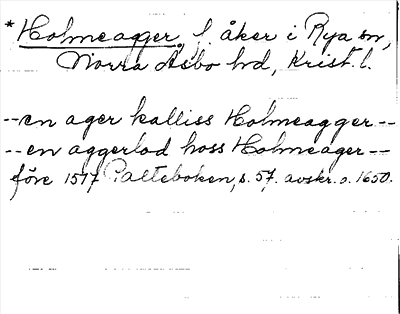 *Holmeagger, f. åker i Rya sn,
Norra Åsbo hd, Krist. l.
--en ager kalliss Holmeagger--
--en aggerlod hoss Holmeager--
före 1517 Palteboken, s. 57. avskr. o. 1650.